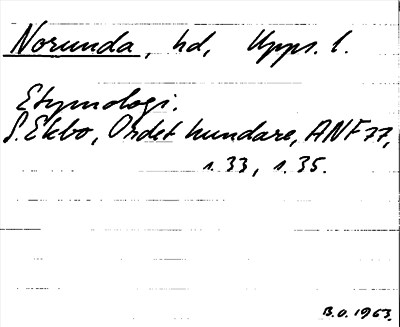 Norunda, hd, Upps. l.
Etymologi.
S. Ekbo, Ordet hundare, ANF 77,
s. 33, s. 35.
B.O. 1963.